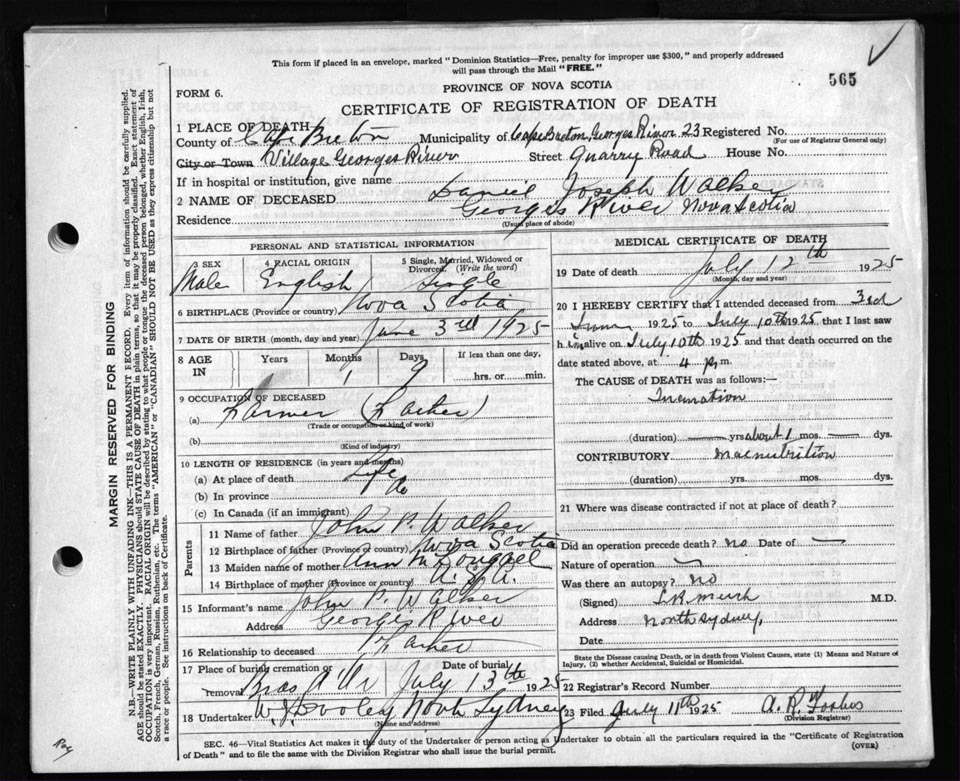 This form if placed in an envelope, marked "Dominion Statistics—Free, penalty for improper use $300," and properly addressed
will pass through the Mail "FREE."
565
PROVINCE OF NOVA SCOTIA
FORM 6.
CERTIFICATE OF REGISTRATION OF DEATH
1 PLACE OF DEATH
County of Cape Breton Municipality of Cape Breton, Georges River 23 Registered No.
(For use of Registrar General only)
City or Town Village Georges River Street Quarry Road House No.
If in hospital or institution, give name
2 NAME OF DECEASED Daniel Joseph Walker
Residence Georges River Nova Scotia
(Usual place of abode)
PERSONAL AND STATISTICAL INFORMATION
3 SEX 4 RACIAL ORIGIN 5 Single, Married, Widowed or
Divorced. (Write the word)
Male English Single
6 BIRTHPLACE (Province or country) Nova Scotia
7 DATE OF BIRTH (month, day and year) June 3rd 1925
8 AGE IN Years Months Days If less than one day,
1 9 hrs. or min.
9 OCCUPATION OF DECEASED
(a) Farmer (Father)
(Trade or occupation or kind of work)
(b)
(Kind of industry)
10 LENGTH OF RESIDENCE (in years and months)
(a) At place of death Life
(b) In province Do
(c) In Canada (if an immigrant)
Parents
11 Name of father John P. Walker
12 Birthplace of father (Province or country) Nova Scotia
13 Maiden name of mother Ann McDougael
14 Birthplace of mother (Province or country) U.S.A.
15 Informant's name John P. Walker
Address Georges River
16 Relationship to deceased Father
17 Place of burial, cremation or Date of burial
removal Bras d'Or July 13th 1925
18 Undertaker W. J. Dooley North Sydney
(Name and address)
MEDICAL CERTIFICATE OF DEATH
19 Date of death July 12th 1925
(Month, day and year)
20 I HEREBY CERTIFY that I attended deceased from 3rd
June 1925 to July 10th 1925 that I last saw
him alive on July 10th 1925 and that death occurred on the
date stated above, at 4 p.m.
The CAUSE of DEATH was as follows:—
Inanation
(duration) — yrs about 1 mos. — dys.
CONTRIBUTORY Malnutrition
(duration) yrs. mos. dys.
21 Where was disease contracted if not at place of death?
Did an operation precede death? no Date of —
Nature of operation —
Was there an autopsy? no
(Signed) M.D.
Address North Sydney,
Date
State the Disease causing Death, or in death from Violent Causes, state (1) Means and Nature of
Injury, (2) whether Accidental, Suicidal or Homicidal.
22 Registrar's Record Number
23 Filed July 11th 1925 A. R. Forbes
(Division Registrar)
SEC. 46—Vital Statistics Act makes it the duty of the Undertaker or person acting as Undertaker to obtain all the particulars required in the "Certificate of Registration
of Death" and to file the same with the Division Registrar who shall issue the burial permit.
(OVER)
MARGIN RESERVED FOR BINDING
N.B.—WRITE PLAINLY WITH UNFADING INK—THIS IS A PERMANENT RECORD. Every item of information should be carefully supplied.
AGE should be stated EXACTLY. PHYSICIANS should STATE CAUSE OF DEATH in plain terms, so that it may be properly classified. Exact statement of
OCCUPATION is very important. RACIAL ORIGIN will be described by stating to what people or tongue the deceased person belonged, whether English, Irish,
Scotch, French, German, Russian, Ruthenian, etc. The terms "AMERICAN" or "CANADIAN" SHOULD NOT BE USED as they express citizenship but not
a race or people. See instructions on back of Certificate.
Roy